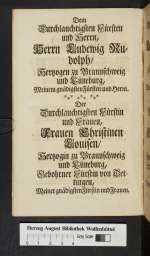 Dem
Durchlauchtigsten Fürsten
und Herrn,
Herrn Ludewig Ru-
dolph,
Hertzogen zu Braunschweig
und Lüneburg,
Meinem gnädigsten Fürsten und Herrn.
Der
Durchlauchtigsten Fürstin
und Frauen,
Frauen Christinen
Louisen,
Hertzogin zu Braunschweig
und Lüneburg,
Gebohrner Fürstin von Oet-
tingen,
Meiner gnädigsten Fürstin und Frauen.
Herzog August Bibliothek Wolfenbüttel